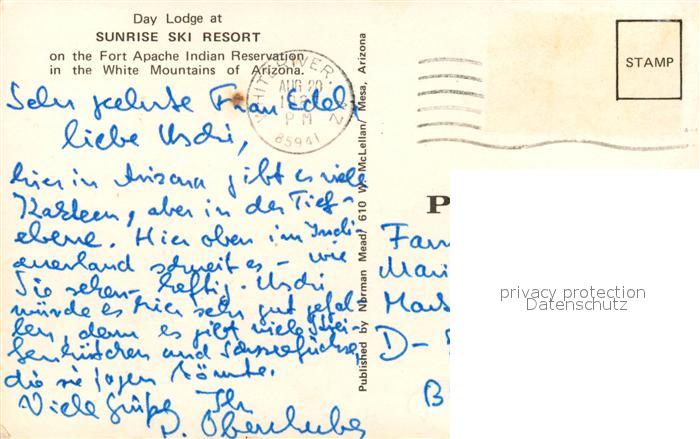 Day Lodge at
SUNRISE SKI RESORT
on the Fort Apache Indian Reservation
in the White Mountains of Arizona.
WHITERIVER, AZ
AUG 20
PM
85941
STAMP
Sehr geehrte Frau Edel,
liebe Uschi,
hier in Arizona gibt es viele
Kakteen, aber in der Tief-
ebene. Hier oben im Indi-
anerland schneit es – wie
Sie sehen – heftig. Uschi
würde es hier sehr gut gefal-
len, denn es gibt viele Strei-
fenhörnchen und
die sie jagen könnte.
Viele Grüße Ihr
D. Oberhuber
Published by Norman Mead/ 610 W. McLellan/ Mesa, Arizona
P
Fam
Mari
D-
B
privacy protection
Datenschutz